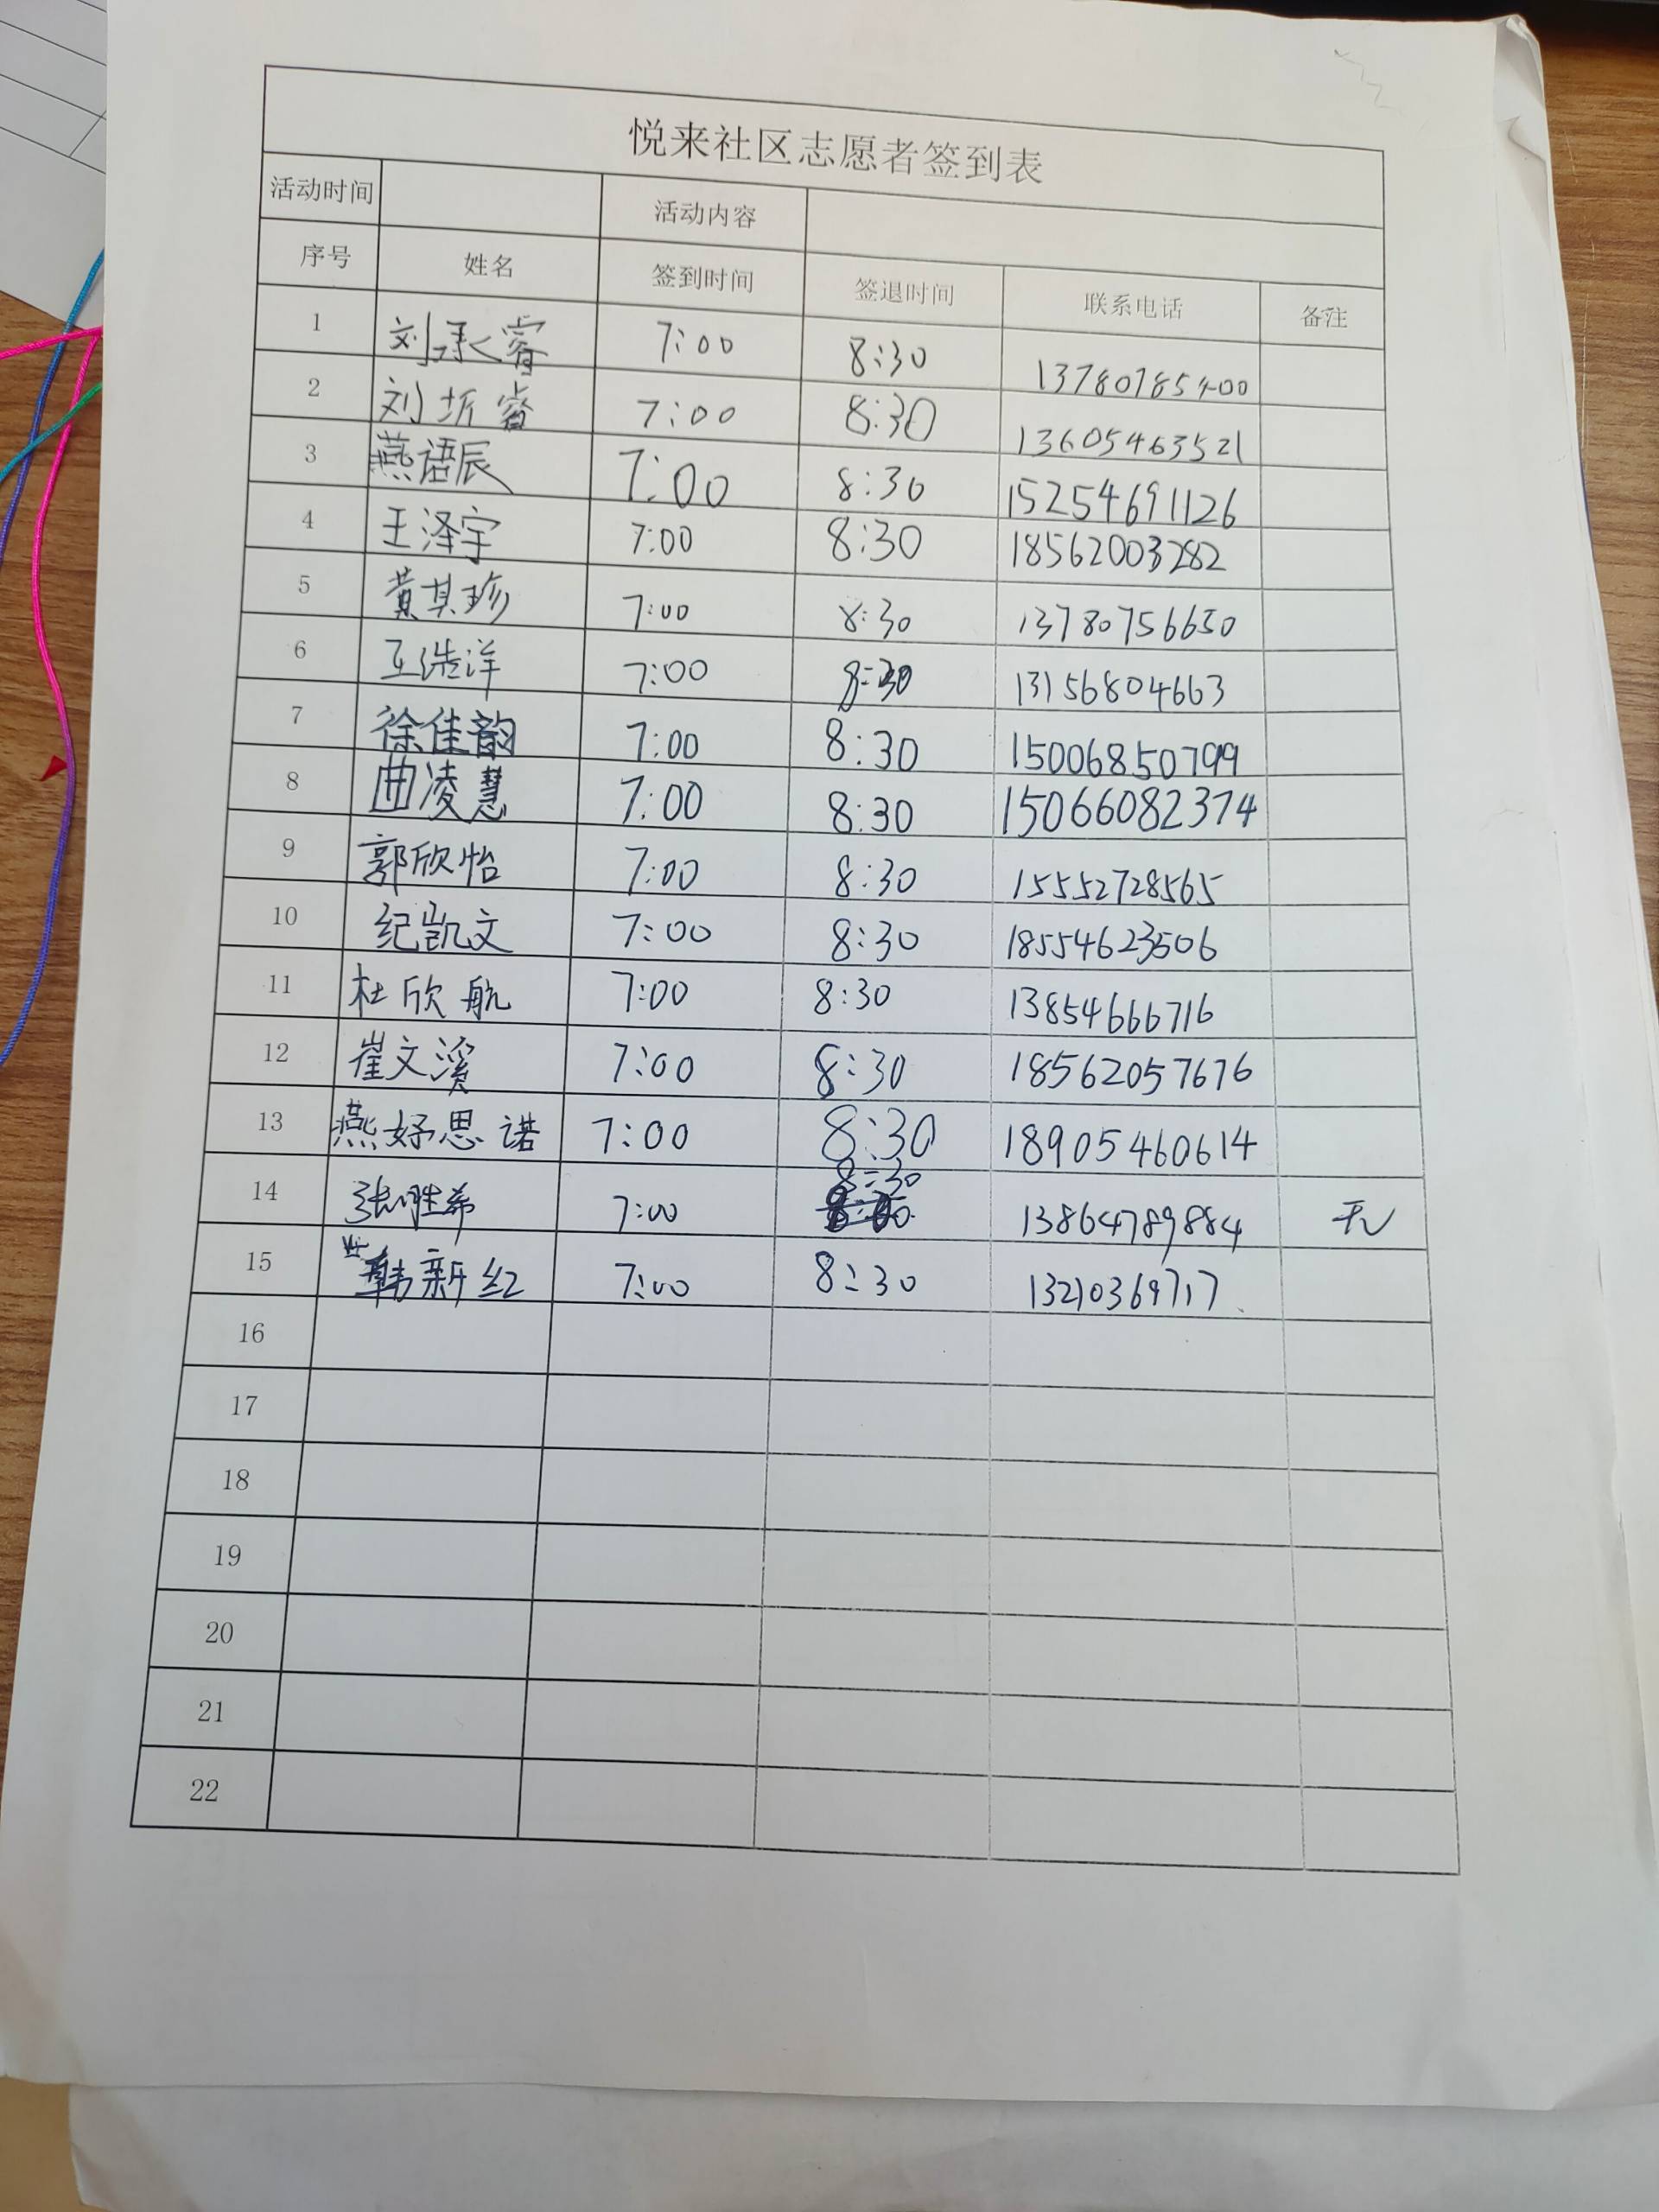 悦来社区志愿者签到表
活动时间 活动内容
序号 姓名 签到时间 签退时间 联系电话 备注
1 刘承睿 7:00 8:30 13780785400
2 刘圻睿 7:00 8:30 13605463521
3 燕语辰 7:00 8:30 15254691126
4 王泽宇 7:00 8:30 18562003282
5 黄其珍 7:00 8:30 13780756650
6 王浩洋 7:00 8:30 13156804663
7 徐佳韵 7:00 8:30 15006850799
8 曲凌慧 7:00 8:30 15066082374
9 郭欣怡 7:00 8:30 15552728565
10 纪凯文 7:00 8:30 18554623506
11 杜欣航 7:00 8:30 13854666716
12 崔文溪 7:00 8:30 18562057676
13 燕妤思诺 7:00 8:30 18905460614
14 7:00 8:30 13864789884 无
15 韩新红 7:00 8:30 13210369717
16
17
18
19
20
21
22